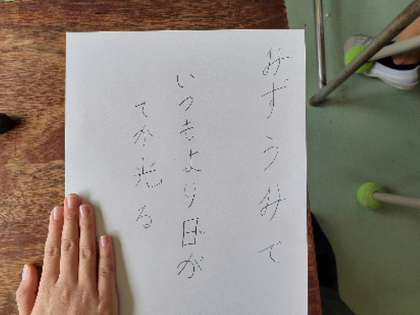 みずうみで
いつきより日が
てか光る